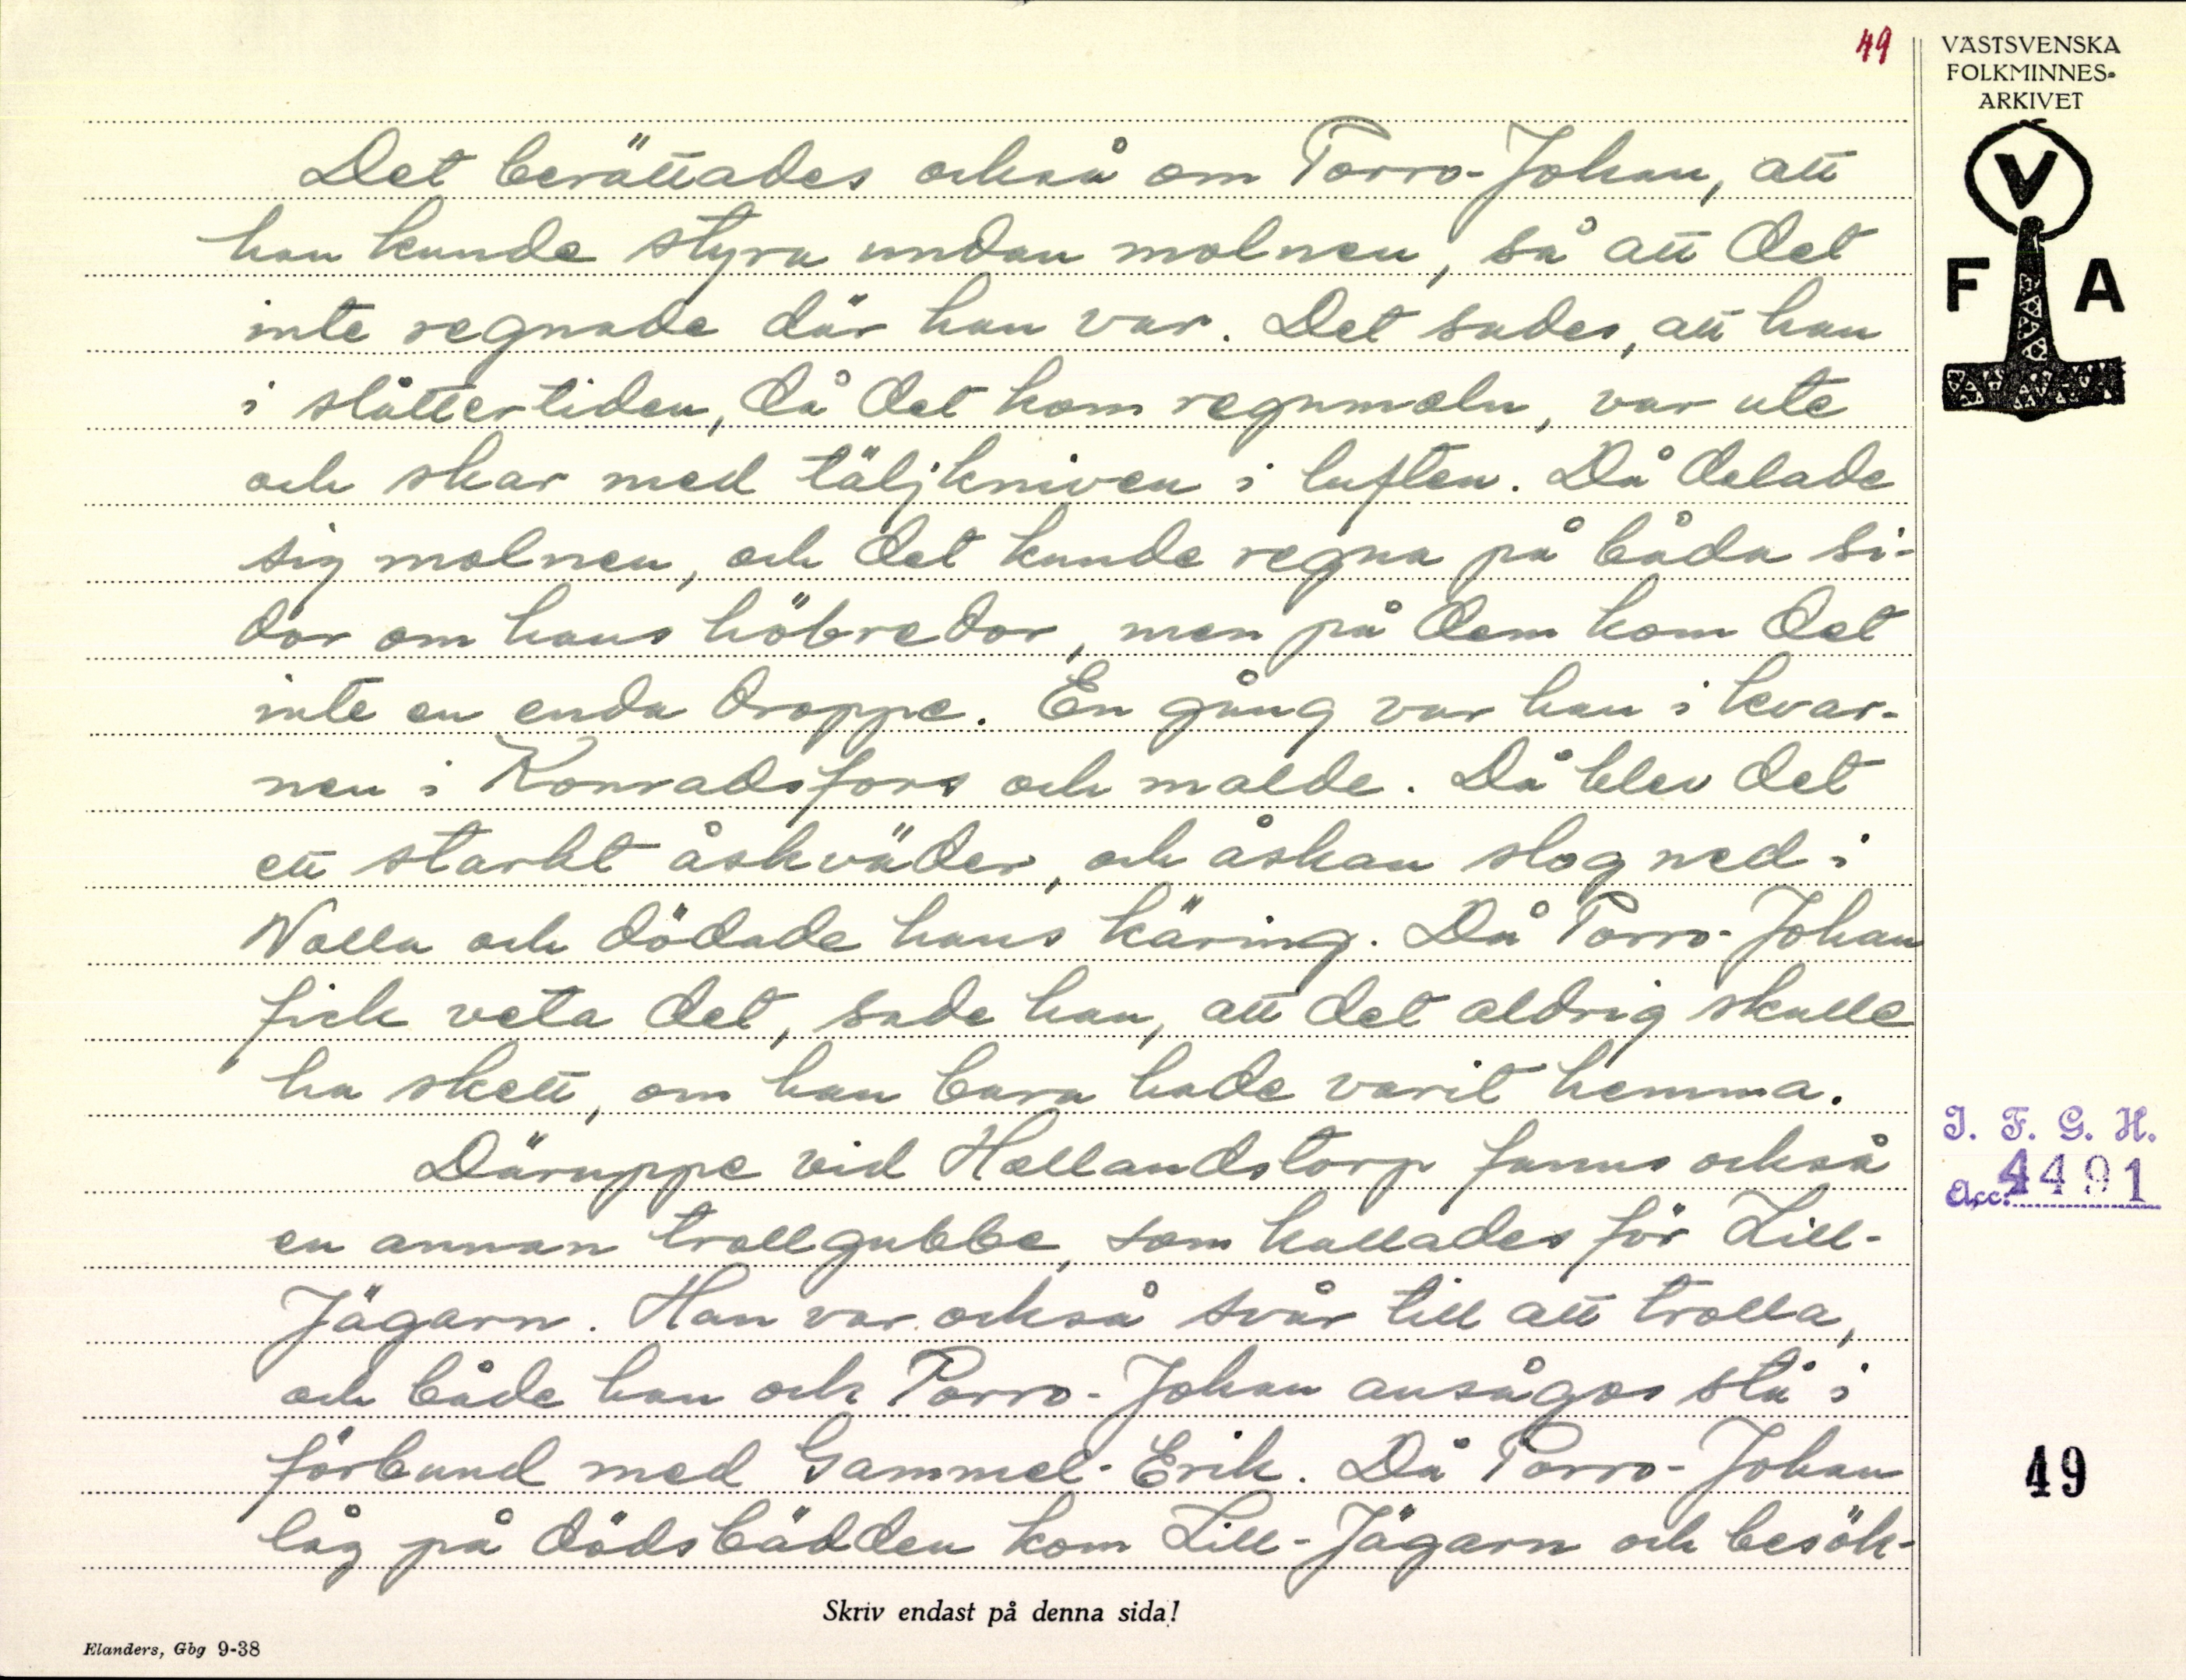 49
VÄSTSVENSKA
FOLKMINNES-
ARKIVET
V
F A
Det berättades också om Porro-Johan, att
han kunde styra undan molnen, så att det
inte regnade där han var. Det sades, att han
i slåttertiden, då det kom regnmoln, var ute
och skar med täljkniven i luften. Då delade
sig molnen, och det kunde regna på båda si-
dor om hans höbredor, men på dem kom det
inte en enda droppe. En gång var han i kvar-
nen i Konradsfors och malde. Då blev det
ett starkt åskväder, och åskan slog ned i
Nolla och dödade hans käring. Då Porro-Johan
fick veta det, sade han, att det aldrig skulle
ha skett, om han bara hade varit hemma.
Däruppe vid Hallandstorp fanns också
en annan trollgubbe, som kallades för Lill-
Jägarn. Han var också svår till att trolla,
och både han och Porro-Johan ansågos stå i
förbund med Gammel-Erik. Då Porro-Johan
låg på dödsbädden kom Lill-Jägarn och besök-
I. F. G. H.
Acc. 4491
49
Skriv endast på denna sida!
Elanders, Gbg 9-38